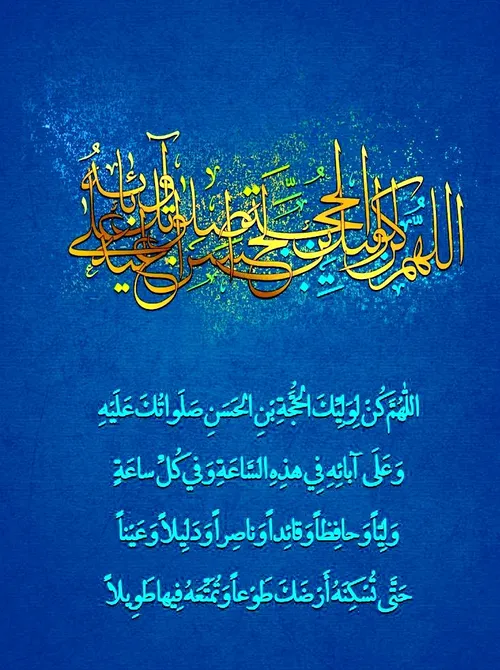 اللهم كن لوليك الحجة بن الحسن صلواتك عليه وعلى آبائه
اَللّهُمَّ كُنْ لِوَلِيِّكَ الحُجَّةِ بْنِ الحَسَنِ صَلَواتُكَ عَلَيْهِ
وَعَلَى آبائِهِ فِي هذِهِ السَّاعَةِ وَفي كُلِّ ساعَةٍ
وَلِيّاً وَحافِظاً وَقائِداً وَناصِراً وَدَلِيلاً وَعَيْناً
حَتَّى تُسْكِنَهُ أَرْضَكَ طَوْعاً وَتُمَتِّعَهُ فِيها طَوِيلاً